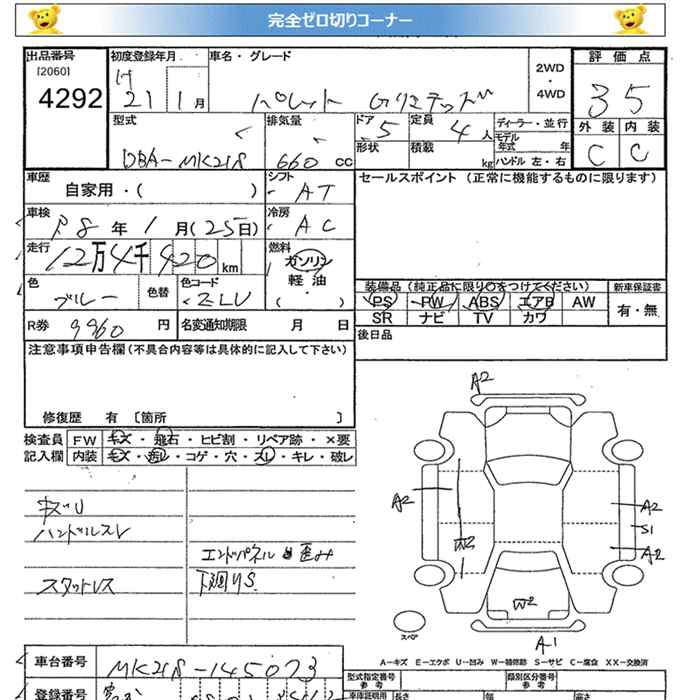 完全ゼロ切りコーナー
出品番号 初度登録年月 車名・グレード 2WD ・ 4WD 評価点
[2060]
4292 H 21 1月 パレット 35
型式 排気量 ドア 定員 ディーラー・並行 外装 内装
DBA-MK21S 660 CC 5 4人 モデル年式 年 C C
形状 積載 kg ハンドル 左・右
車歴 シフト セールスポイント (正常に機能するものに限ります)
自家用・( ) AT
車検 冷房
R8年1月(25日) AC
走行 燃料
12万4千920km ガソリン
軽油
( )
色 色替 色コード 装備品 (純正品に限り○をつけてください) 新車保証書
ブルー ZLU PS PW ABS エアB AW 有・無
R券 9960円 名変通知期限 月 日 SR ナビ TV カワ
注意事項申告欄(不具合内容等は具体的に記入して下さい) 後日品
修復歴 有 〔箇所 〕
検査員 FW キズ・飛石・ヒビ割・リペア跡・×要
記入欄 内装 キズ・汚レ・コゲ・穴・スレ・キレ・破レ
A2
キズU
ハンドルスレ
A2 A2
S1
エンドパネル 歪み W2 A2
スタットレス 下廻りS
W2
スペア
A1
A-キズ E-エクボ U-凹み W-補修跡 S-サビ C-腐食 XX-交換済
車台番号 MK21S-145073
型式指定番号 参考 類別区分番号 参考
登録番号 車庫証明用 長さ 幅 高さ